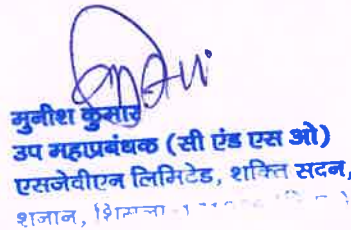 मुनीश कुमार
उप महाप्रबंधक (सी एंड एस ओ)
एसजेवीएन लिमिटेड, शक्ति सदन,
शनान,